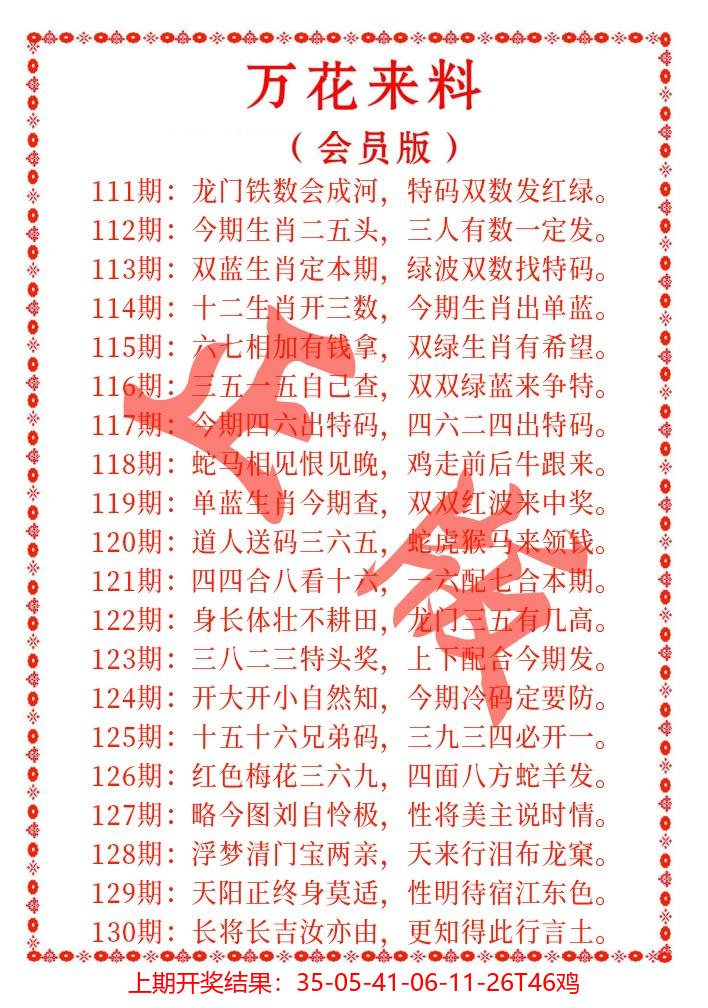 万花来料
（会员版）
111期：龙门铁数会成河，特码双数发红绿。
112期：今期生肖二五头，三人有数一定发。
113期：双蓝生肖定本期，绿波双数找特码。
114期：十二生肖开三数，今期生肖出单蓝。
115期：六七相加有钱拿，双绿生肖有希望。
116期：三五一五自己查，双双绿蓝来争特。
117期：今期四六出特码，四六二四出特码。
118期：蛇马相见恨见晚，鸡走前后牛跟来。
119期：单蓝生肖今期查，双双红波来中奖。
120期：道人送码三六五，蛇虎猴马来领钱。
121期：四四合八看十六，一六配七合本期。
122期：身长体壮不耕田，龙门三五有几高。
123期：三八二三特头奖，上下配合今期发。
124期：开大开小自然知，今期冷码定要防。
125期：十五十六兄弟码，三九三四必开一。
126期：红色梅花三六九，四面八方蛇羊发。
127期：略今图刘自怜极，性将美主说时情。
128期：浮梦清门宝两亲，天来行泪布龙窠。
129期：天阳正终身莫适，性明待宿江东色。
130期：长将长吉汝亦由，更知得此行言土。
上期开奖结果：35-05-41-06-11-26T46鸡